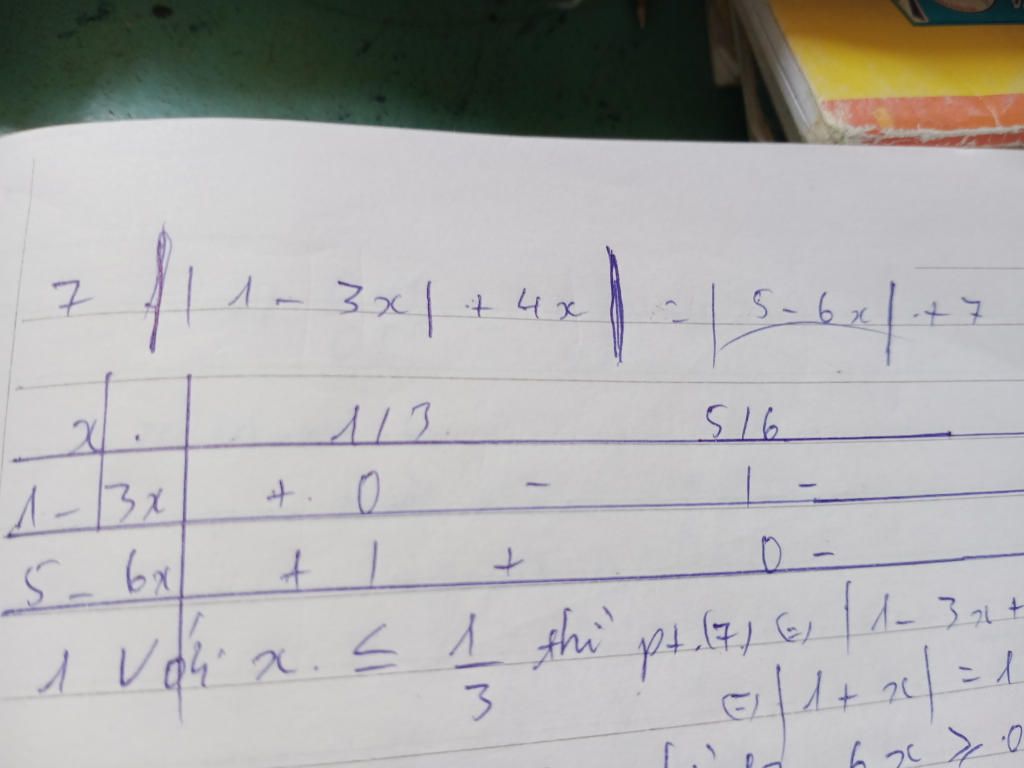 7 | |1 - 3x| + 4x | = |5 - 6x| + 7
x 1/3 5/6
1 - 3x + 0 - | -
5 - 6x + | + 0 -
1 Với x ≤ 1/3 thì pt (7) (=) |1 - 3x +
(=) |1 + x| = 1
6x ≥ 0